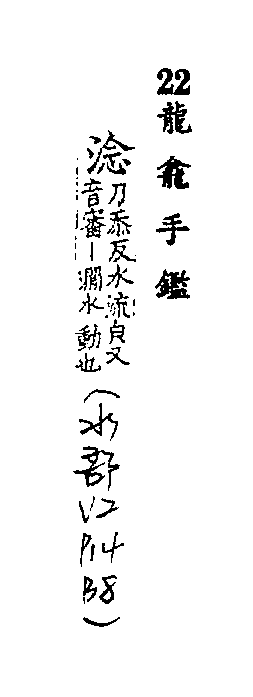 22龍龕手鑑
淰乃忝反水流皃又音審丨㵎水動也(水部V2P14B8)